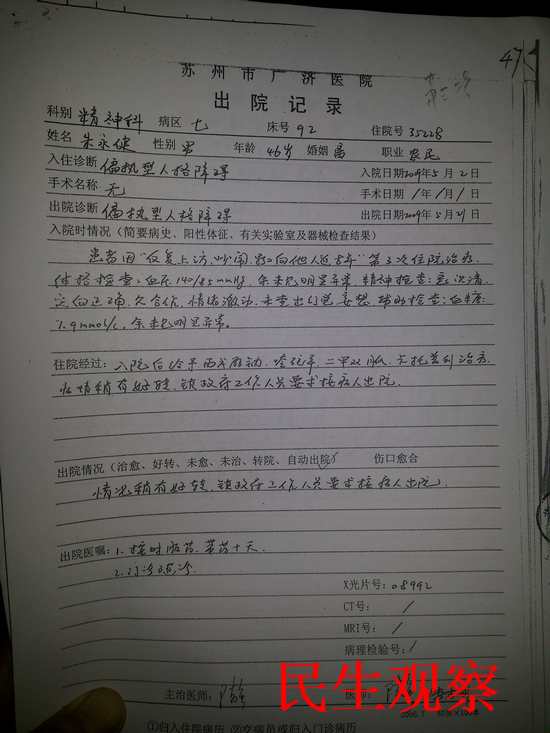 47
苏州市广济医院
出院记录
科别 精神科 病区 七 床号 92 住院号 35228
姓名 朱永健 性别 男 年龄 46岁 婚姻 离 职业 农民
入住诊断 偏执型人格障碍 入院日期2009年5月2日
手术名称 无 手术日期 / 年 / 月 / 日
出院诊断 偏执型人格障碍 出院日期2009年5月21日
入院时情况(简要病史、阳性体征、有关实验室及器械检查结果)
患者因“反复上访,吵闹 第 次住院治疗.
体格检查:血压140/85mmHg,余未见明显异常.精神检查:意识清,
定向正确,欠合作,情绪激动,未查出幻觉妄想.辅助检查:血糖:
7.9mmol/L,余未见明显异常。
住院经过:入院后给予 二甲双胍, 治疗
病情稍有好转,镇政府工作人员要求接病人出院.
出院情况(治愈、好转、未愈、未治、转院、自动出院) 伤口愈合
情况稍有好转,镇政府工作人员要求接病人出院.
出院医嘱:1.按时服药,带药十天.
2.门诊随诊.
X光片号:08992
CT号: /
MRI号: /
病理检验号: /
主治医师: 医师:
民生观察
①归入住院病历 ②交病员或归入门诊病历